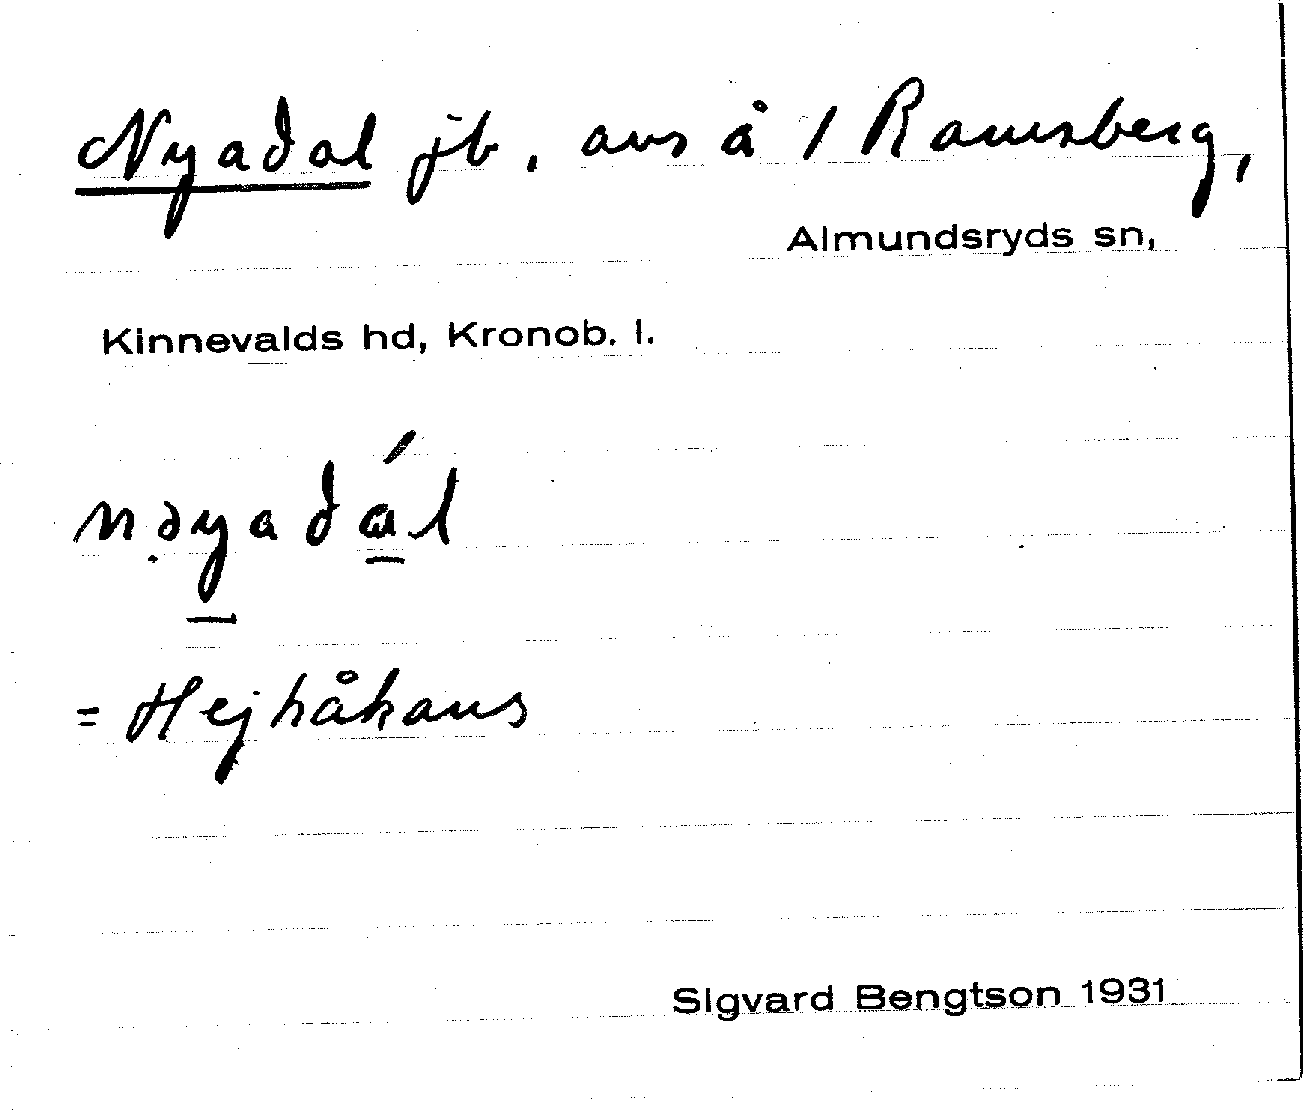 Nyadal jb. avs å 1 Ramsberg,
Almundsryds sn,
Kinnevalds hd, Kronob. l.
nǝ̣yadál
= Hejhåkans
Sigvard Bengtson 1931